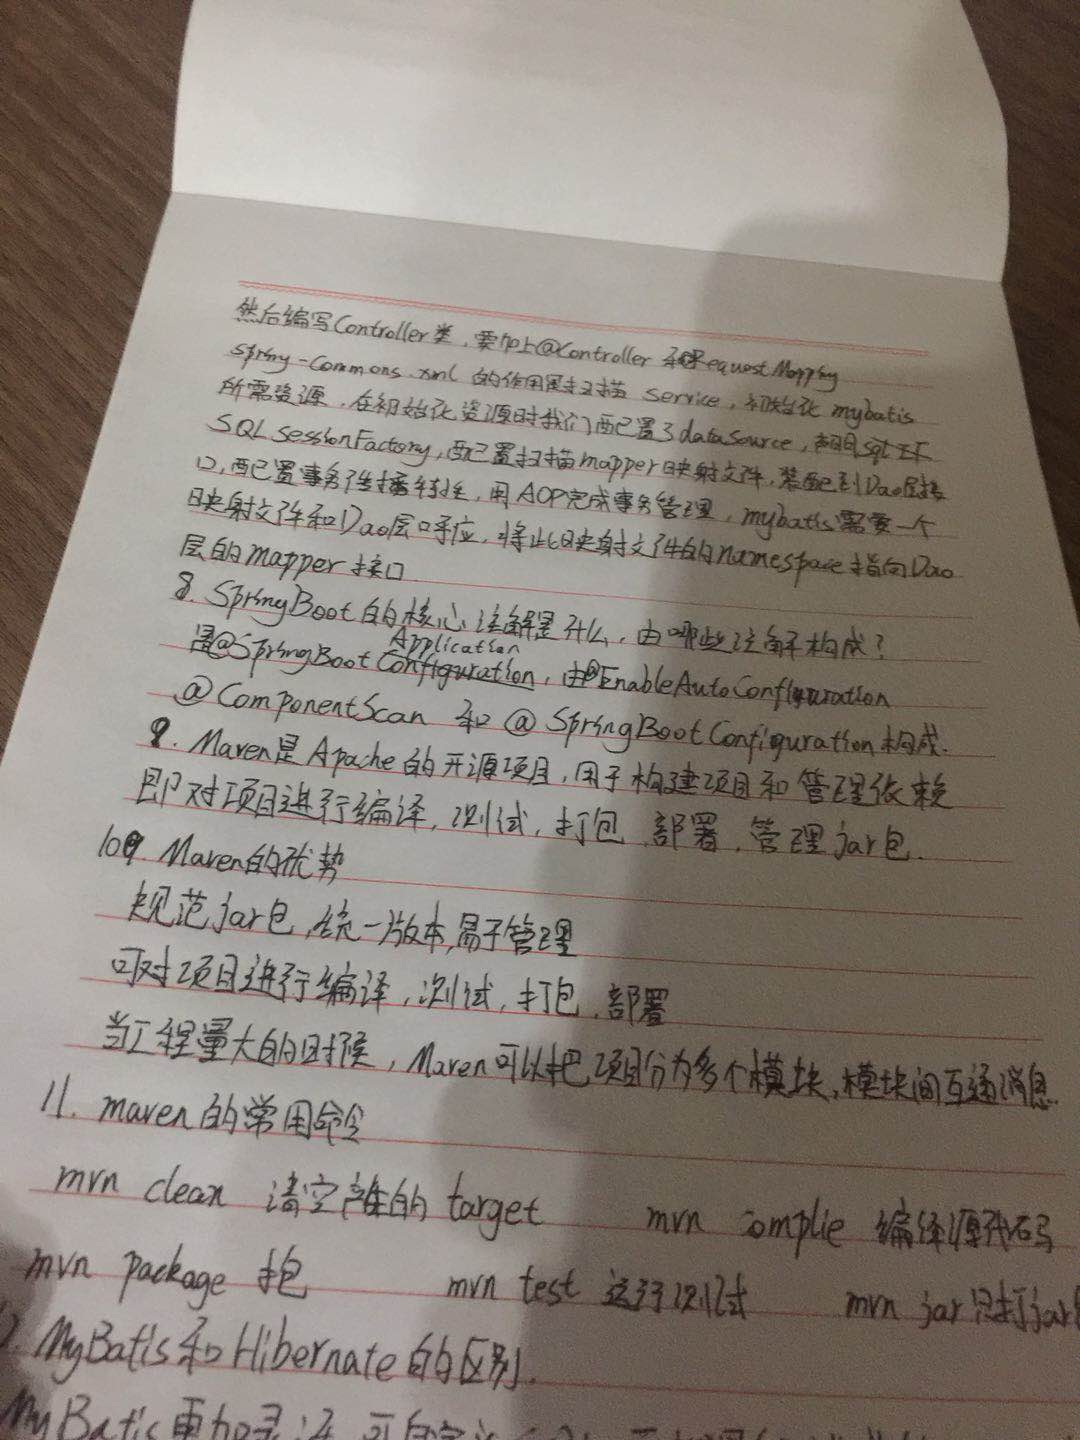 然后编写Controller类，要加上@Controller 和@RequestMapping
Spring-Commons.xml 的作用是扫描 service，初始化 mybatis
所需资源，在初始化资源时我们配置了dataSource，
SQLsessionFactory，配置扫描mapper映射文件，装配到Dao层接
口，配置事务传播特性，用AOP完成事务管理，mybatis需要一个
映射文件和Dao层呼应，将此映射文件的namespace指向Dao
层的mapper接口
8. SpringBoot的核心注解是什么，由哪些注解构成？
Application
是@SpringBoot Configuration，由@EnableAutoConfiguration
@ComponentScan 和 @SpringBootConfiguration构成.
9. Maven是Apache的开源项目，用于构建项目和管理依赖
即对项目进行编译，测试，打包，部署，管理jar包.
10. Maven的优势
规范jar包，统一版本，易于管理
可对项目进行编译，测试，打包，部署
当工程量大的时候，Maven可以把项目分为多个模块，模块间互通消息.
11. maven的常用命令
mvn clean 清空产生的 target mvn complie 编译源代码
mvn package 打包 mvn test 运行测试 mvn jar 只打jar
MyBatis和Hibernate的区别.
MyBatis更加灵活，可自定义